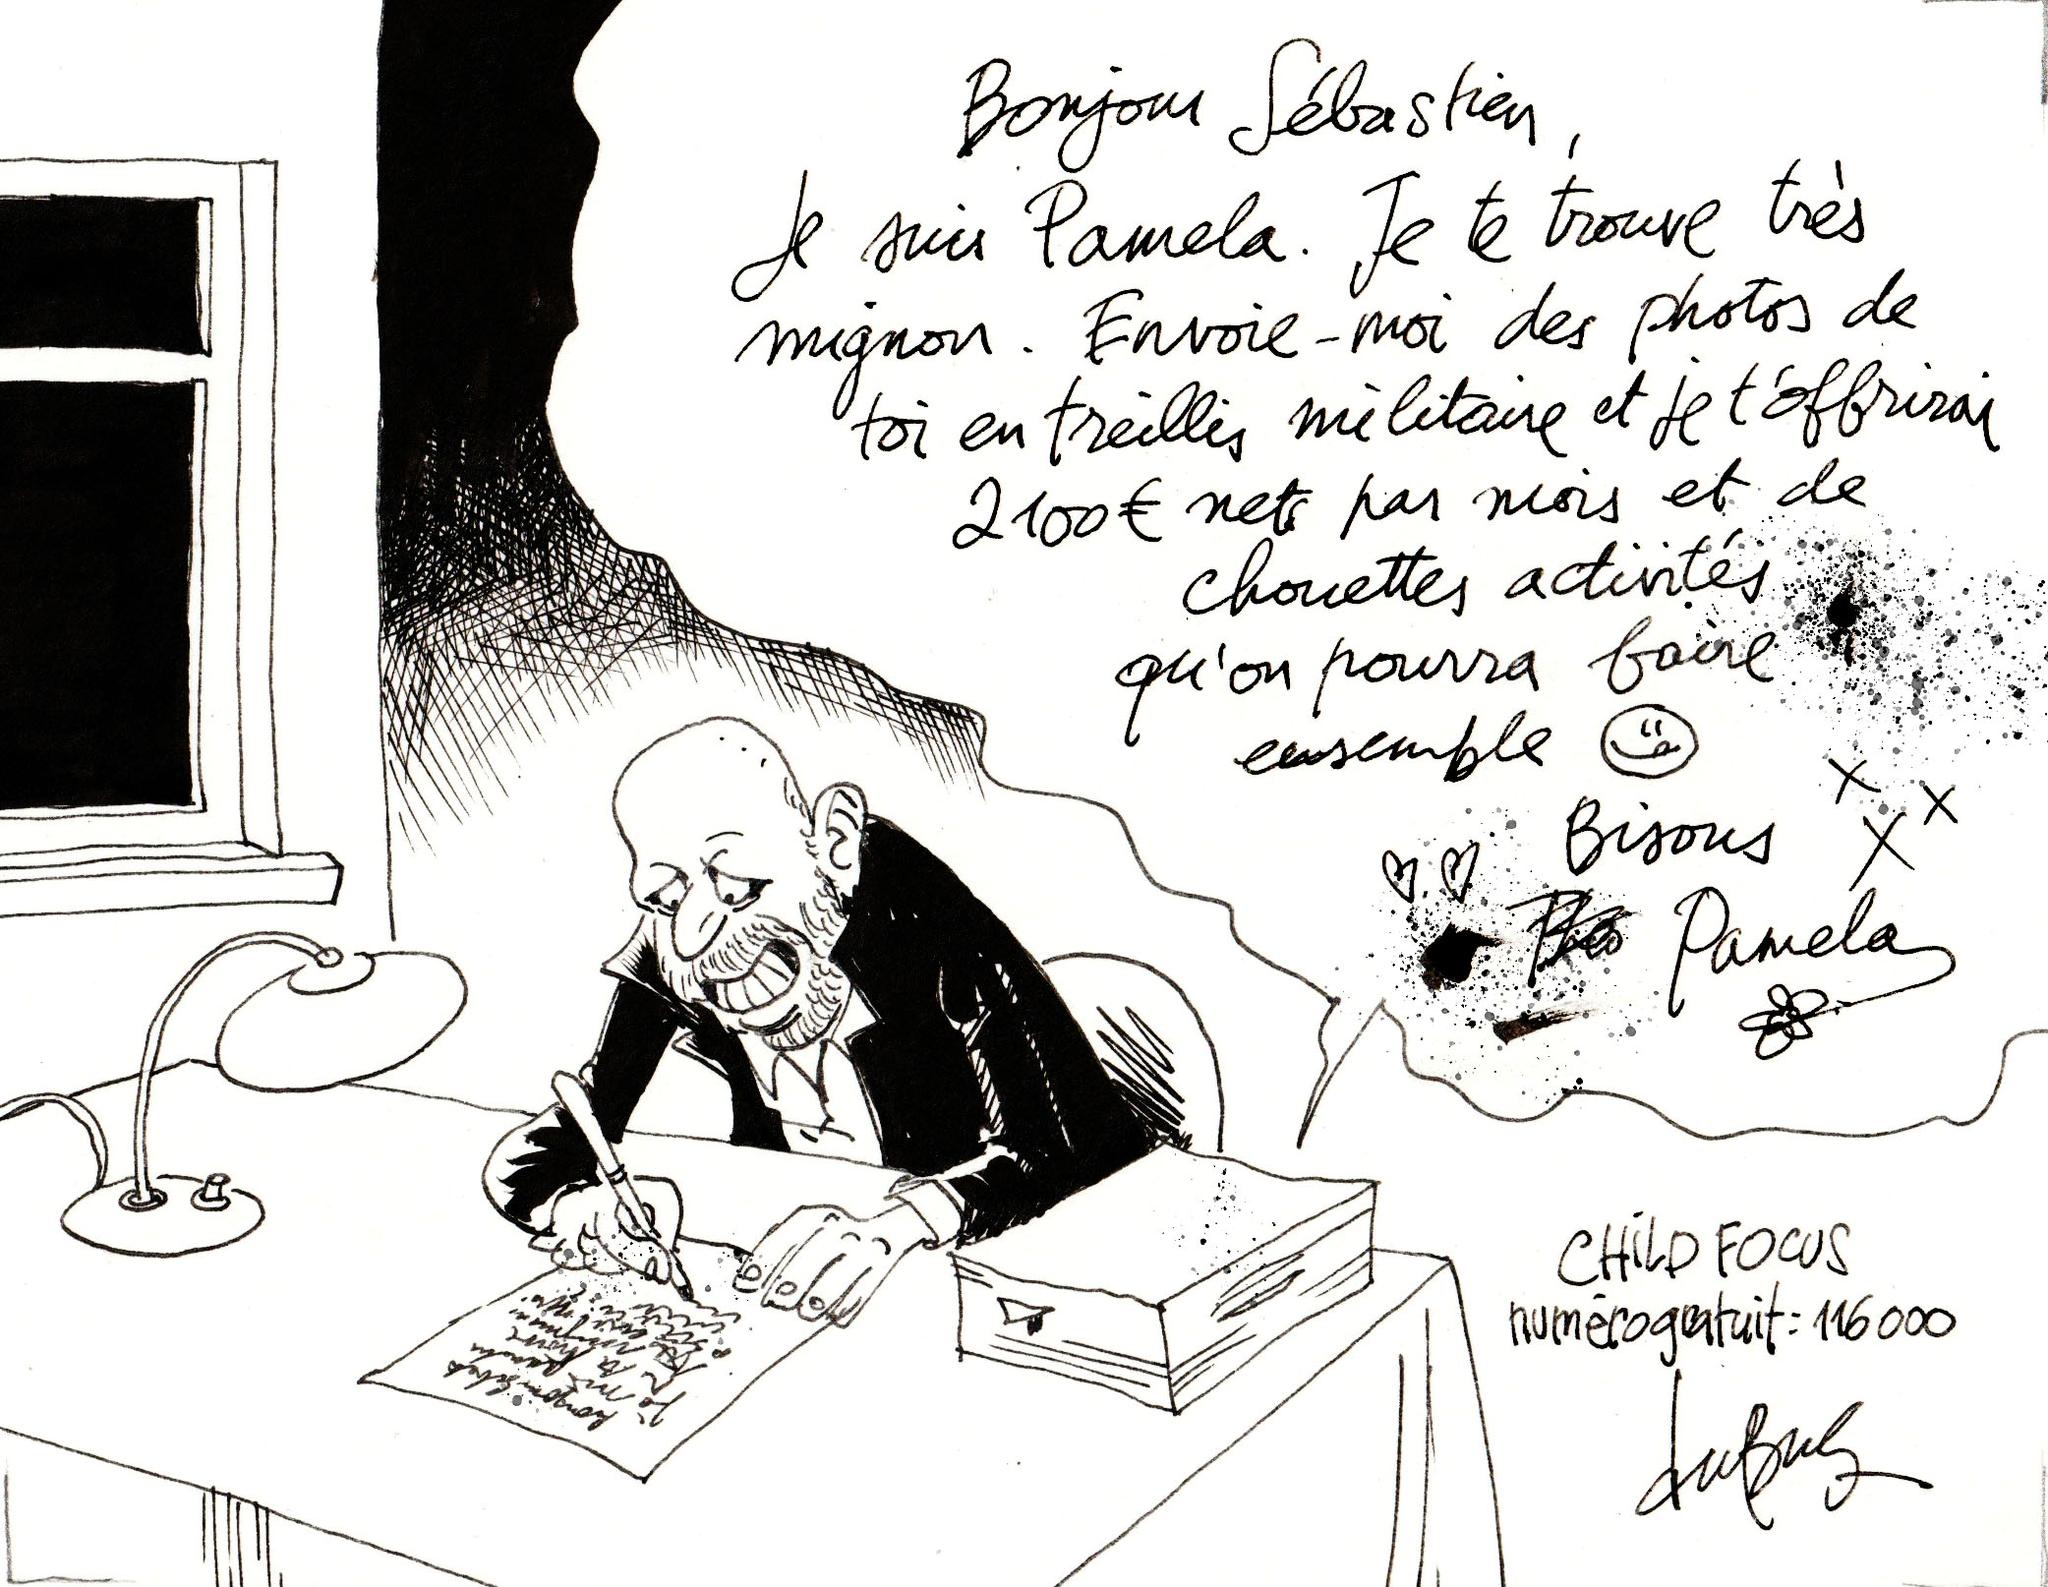 Bonjour Sébastien,
Je suis Pamela. Je te trouve très
mignon. Envoie-moi des photos de
toi en treillis militaire et je t'offrirai
2100€ nets par mois et de
chouettes activités
qu'on pourra faire
ensemble
Bisous
Pamela
CHILD FOCUS
numéro gratuit: 116000
duBus